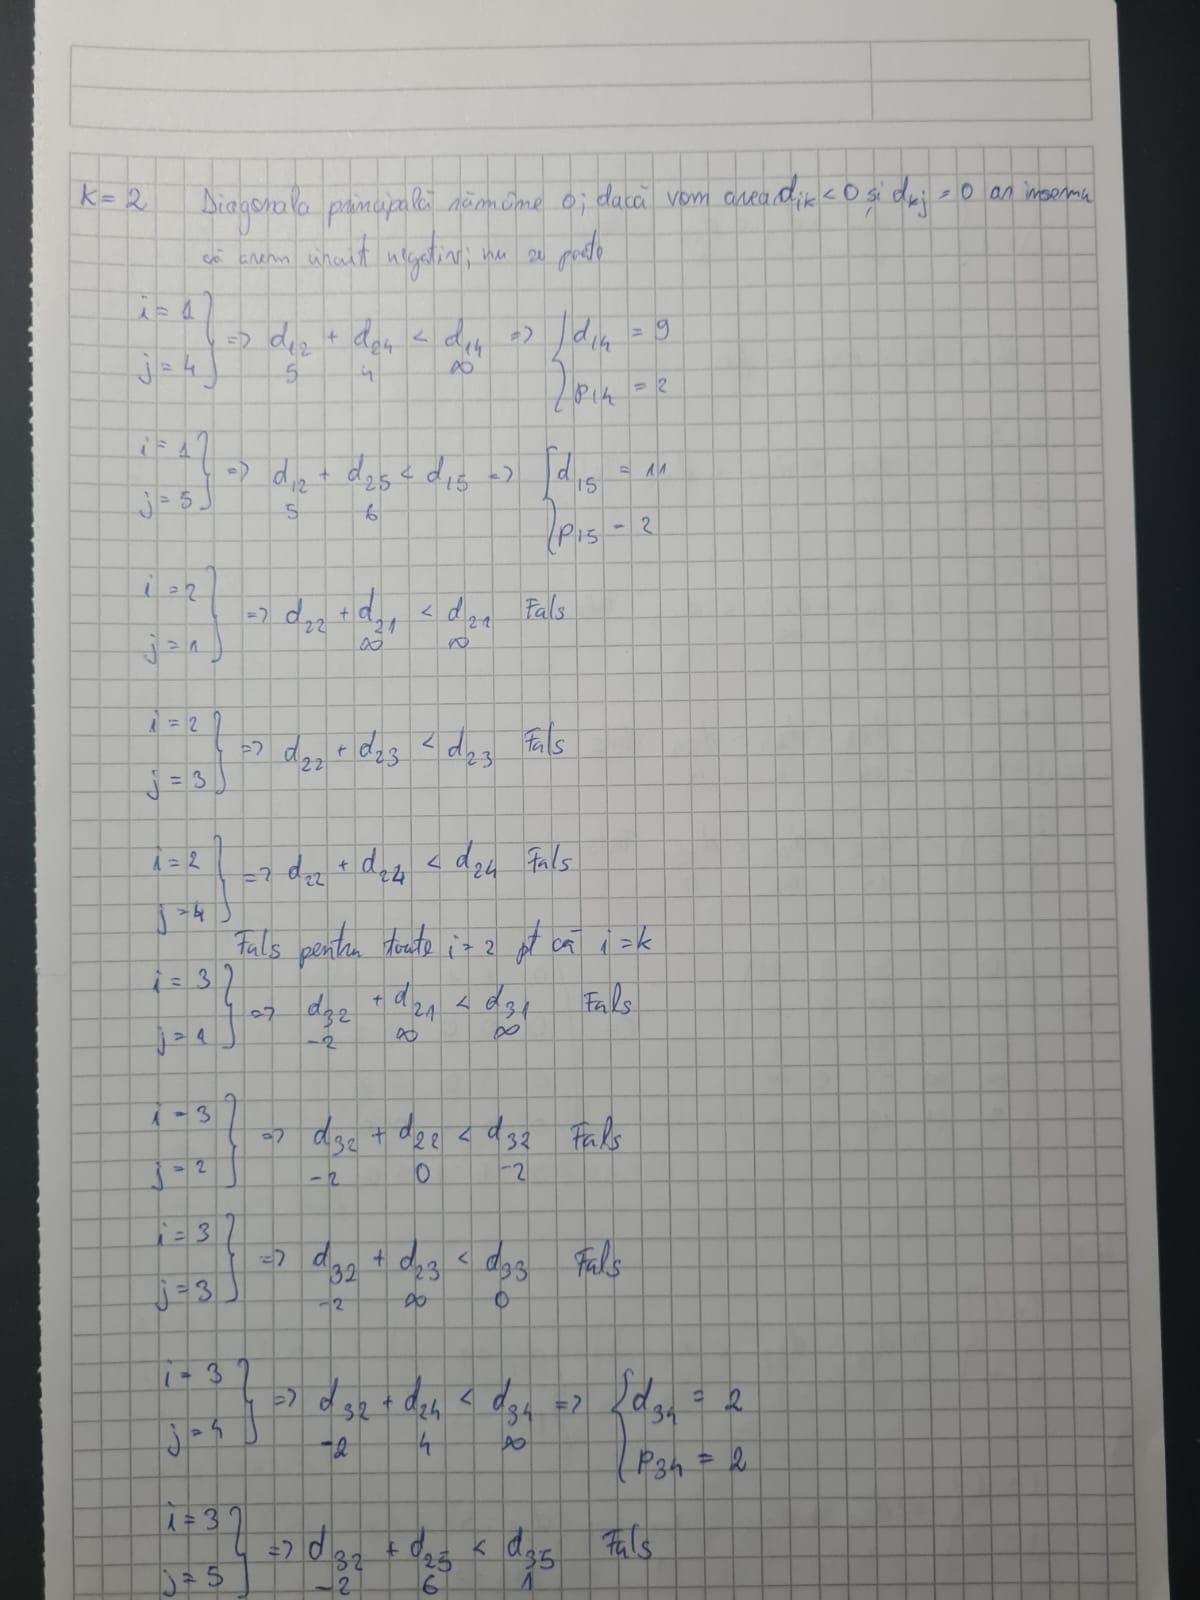 k = 2 Diagonala principală rămâne 0; dacă vom avea d_ik < 0 și d_kj = 0 ar însemna
că avem circuit negativ; nu se poate
i = 1
j = 4 } => d_12 + d_24 < d_14 => { d_14 = 9
5 4 ∞
p_14 = 2
i = 1
j = 5 } => d_12 + d_25 < d_15 => { d_15 = 11
5 6
p_15 = 2
i = 2
j = 1 } => d_22 + d_21 < d_21 Fals
∞ ∞
i = 2
j = 3 } => d_22 + d_23 < d_23 Fals
i = 2
j = 4 } => d_22 + d_24 < d_24 Fals
Fals pentru toate i = 2 pt că i = k
i = 3
j = 1 } => d_32 + d_21 < d_31 Fals
-2 ∞ ∞
i = 3
j = 2 } => d_32 + d_22 < d_32 Fals
-2 0 -2
i = 3
j = 3 } => d_32 + d_23 < d_33 Fals
-2 ∞ 0
i = 3
j = 4 } => d_32 + d_24 < d_34 => { d_34 = 2
-2 4 ∞
p_34 = 2
i = 3
j = 5 } => d_32 + d_25 < d_35 Fals
-2 6 1